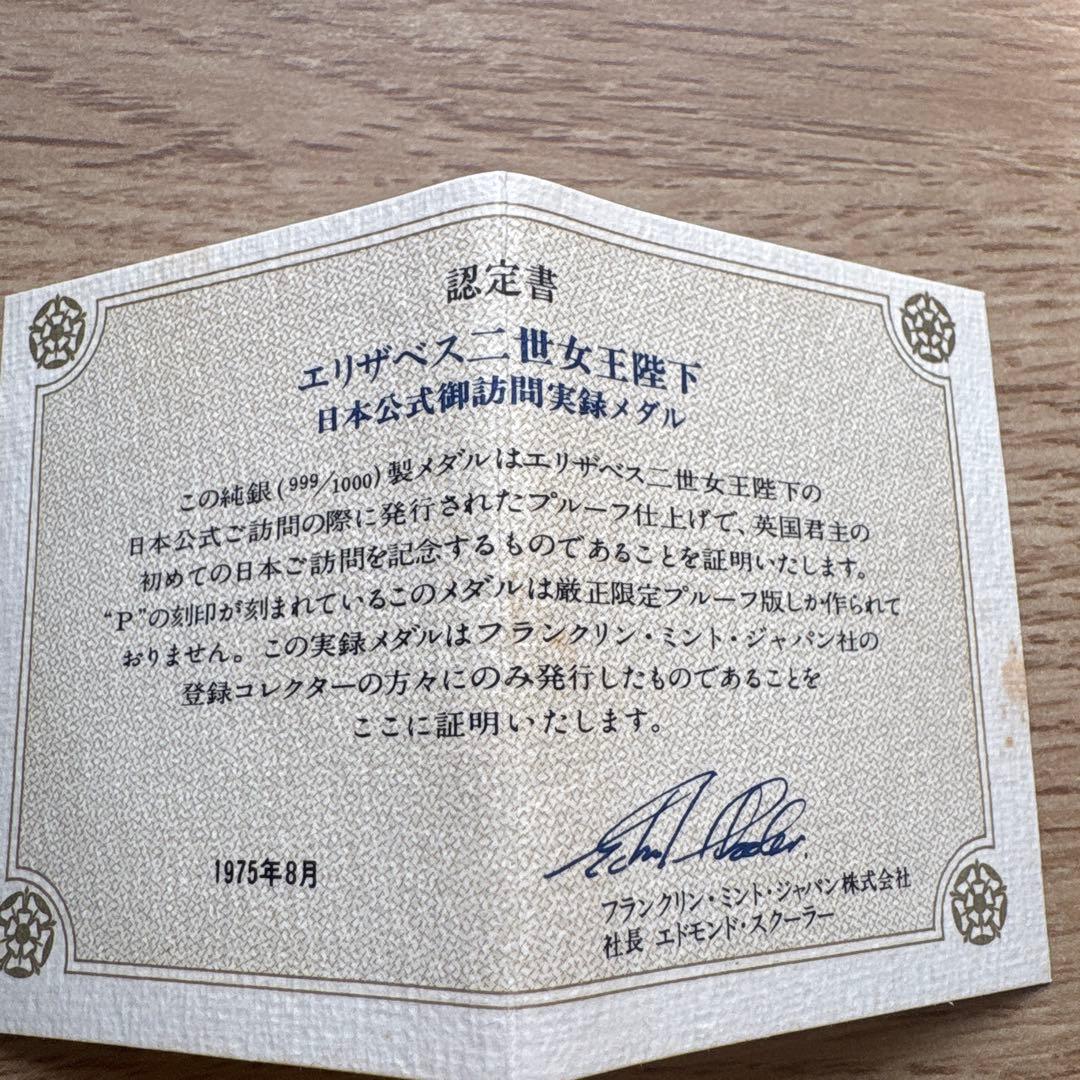 認定書
エリザベス二世女王陛下
日本公式御訪問実録メダル
この純銀(999/1000)製メダルはエリザベス二世女王陛下の
日本公式ご訪問の際に発行されたプルーフ仕上げで、英国君主の
初めての日本ご訪問を記念するものであることを証明いたします。
“P”の刻印が刻まれているこのメダルは厳正限定プルーフ版しか作られて
おりません。この実録メダルはフランクリン・ミント・ジャパン社の
登録コレクターの方々にのみ発行したものであることを
ここに証明いたします。
1975年8月
フランクリン・ミント・ジャパン株式会社
社長 エドモンド・スクーラー